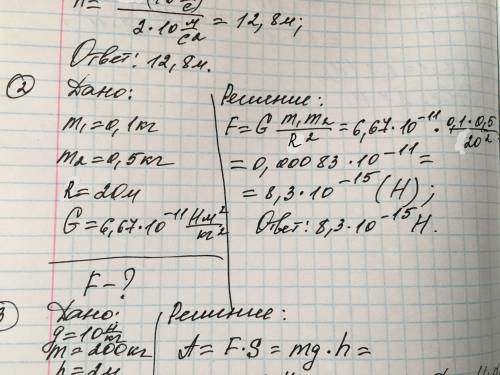 2·10 м/с² = 12,8м;
Ответ: 12,8м.
② Дано:
m₁=0,1кг
m₂=0,5кг
R=20м
G=6,67·10⁻¹¹ Нм²/кг²
F-?
Решение:
F=G m₁m₂/R² =6,67·10⁻¹¹·0,1·0,5/20²
=0,00083·10⁻¹¹=
=8,3·10⁻¹⁵(Н);
Ответ: 8,3·10⁻¹⁵Н.
3 Дано:
g=10Н/кг
m=200кг
h=2м
Решение:
A=F·S=mg·h=